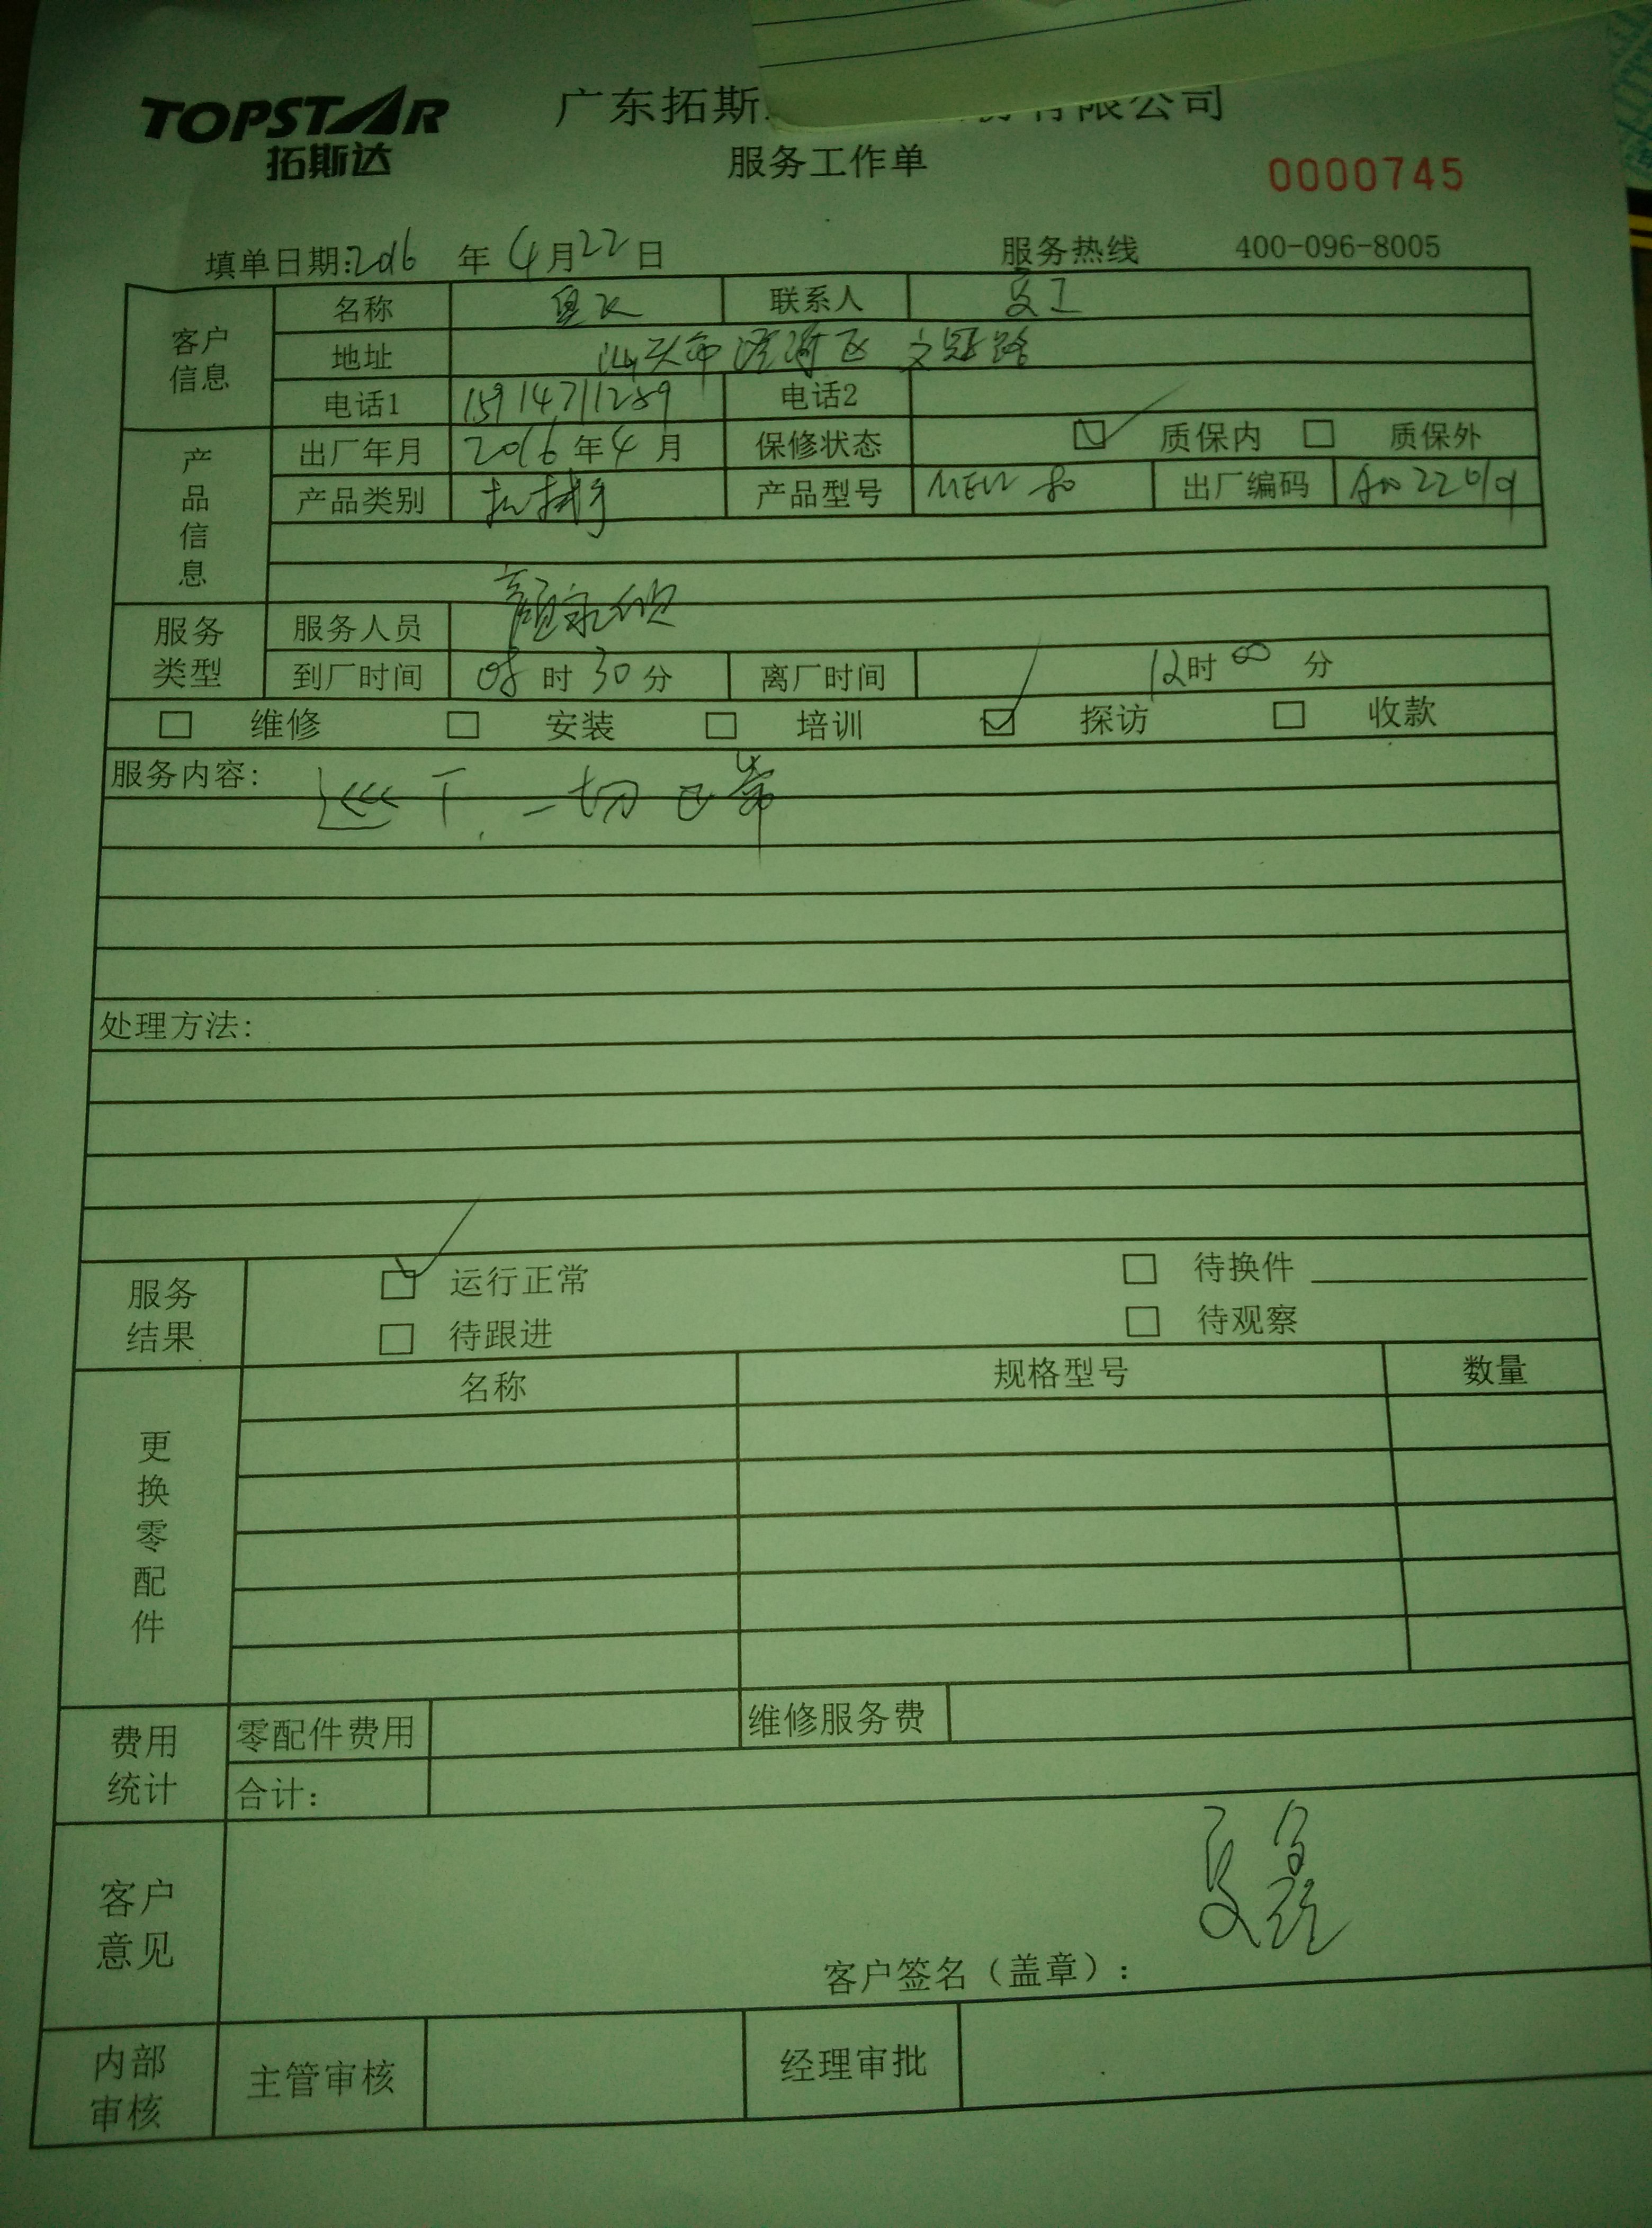 TOPSTAR
拓斯达
广东拓斯 有限公司
服务工作单
0000745
填单日期:2016 年 4月22日
服务热线 400-096-8005
客户信息
名称 联系人
地址 汕头市澄海区 文冠路
电话1 15914711289 电话2
产品信息
出厂年月 2016年4月 保修状态 质保内 质保外
产品类别 机械手 产品型号 出厂编码
服务类型
服务人员
到厂时间 08时30分 离厂时间 12时00分
维修 安装 培训 探访 收款
服务内容:
巡厂,一切正常
处理方法:
服务结果
运行正常 待换件
待跟进 待观察
更换零配件
名称 规格型号 数量
费用统计
零配件费用 维修服务费
合计:
客户意见
客户签名(盖章):
内部审核
主管审核 经理审批